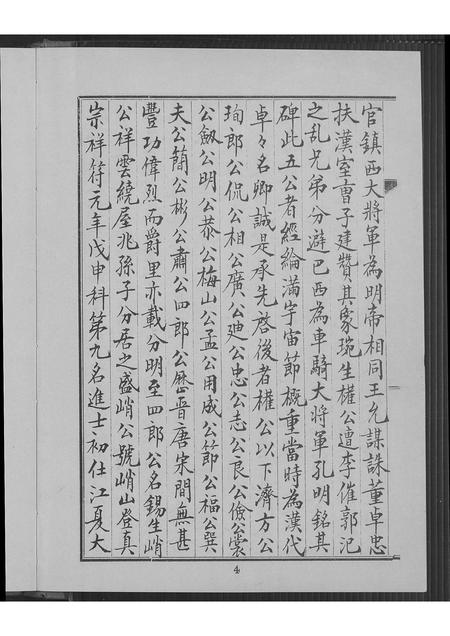 官鎮西大將軍為明帝相同王允謀誅董卓忠
扶漢室曺子建贊其象琬生權公遭李傕郭汜
之乱兄弟分避巴西為車騎大將軍孔明銘其
碑此五公者經綸滿宇宙節概重當時為漢代
卓々名卿誠是承先啓後者權公以下濟方公
珣郎公侃公相公廣公廸公忠公志公良公儉公裳
公劔公明公恭公梅山公孟公用成公節公福公巽
夫公簡公彬公肅公四郎公歷晋唐宋間無甚
豐功偉烈而爵里亦載分明至四郎公名錫生峭
公祥雲繞屋兆孫子分居之盛峭公號峭山登真
宗祥符元年戊申科第九名進士初仕江夏大
4